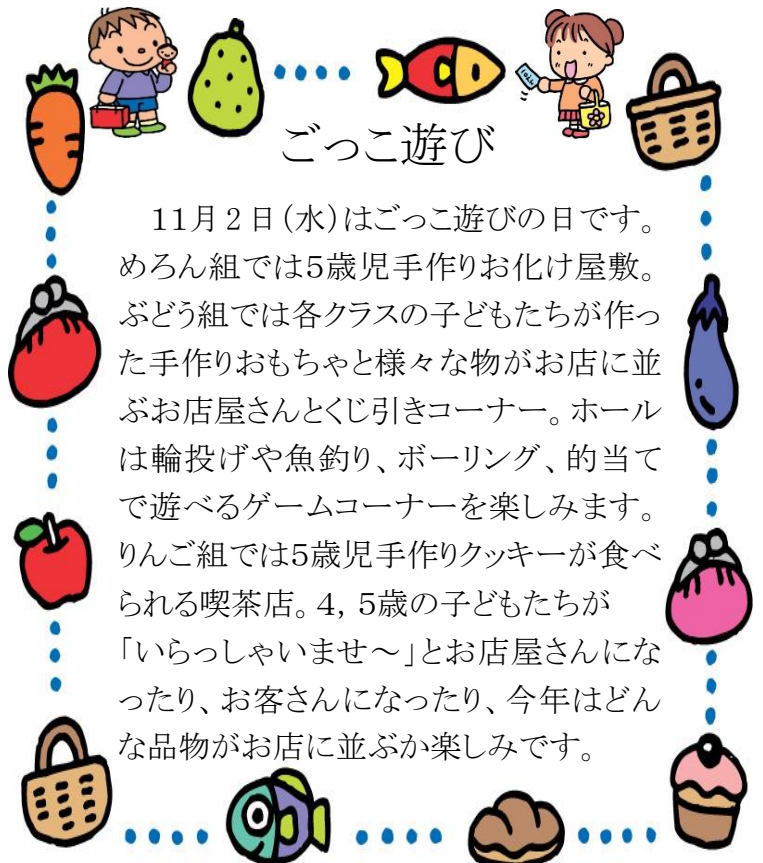 ごっこ遊び
11月2日(水)はごっこ遊びの日です。
めろん組では5歳児手作りお化け屋敷。
ぶどう組では各クラスの子どもたちが作っ
た手作りおもちゃと様々な物がお店に並
ぶお店屋さんとくじ引きコーナー。ホール
は輪投げや魚釣り、ボーリング、的当て
で遊べるゲームコーナーを楽しみます。
りんご組では5歳児手作りクッキーが食べ
られる喫茶店。4，5歳の子どもたちが
「いらっしゃいませ～」とお店屋さんにな
ったり、お客さんになったり、今年はどん
な品物がお店に並ぶか楽しみです。